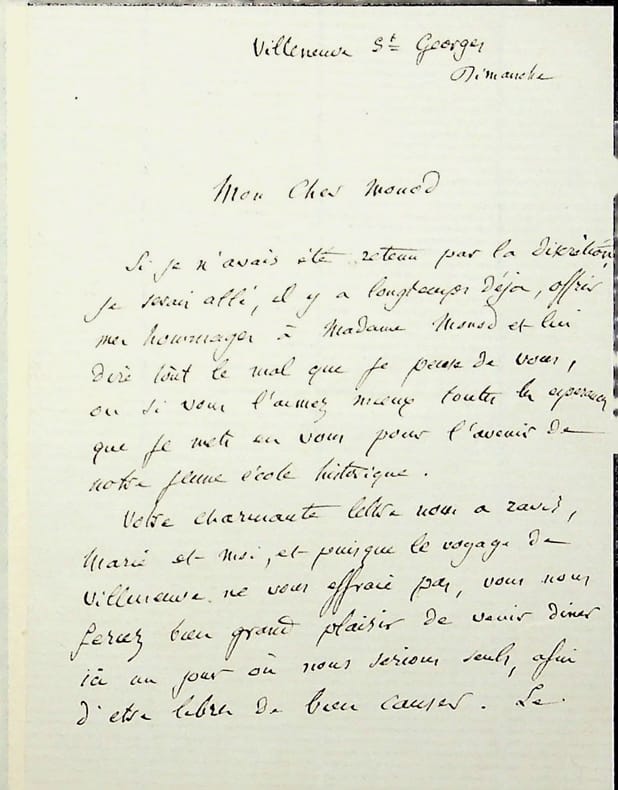 Villeneuve St Georges
Dimanche
Mon cher Monod
Si je n'avais été retenu par la discrétion,
je serais allé, il y a longtemps déjà, offrir
mes hommages à Madame Monod et lui
dire tout le mal que je pense de vous,
ou si vous l'aimez mieux toutes les espérances
que je mets en vous pour l'avenir de
notre jeune école historique.
Votre charmante lettre nous a ravis,
Marie et moi, et puisque le voyage de
Villeneuve ne vous effraie pas, vous nous
ferez bien grand plaisir de venir diner
ici un jour où nous serions seuls, afin
d'etre libres de bien causer. Le